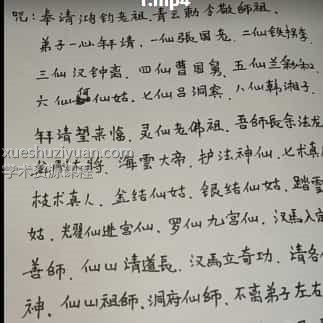 1.mp4
咒：奉请鸿钧老祖.青云勅令敬師祖.
弟子一心拜请，一仙張国老，二仙铁拐李，
三仙汉钟离，四仙曹国舅，五仙兰彩和，
六仙何仙姑，七仙吕洞宾，八仙韩湘子，
拜请望来临，灵仙老佛祖，吾師長余法龙
大将，海雲大帝，护法神仙，七术真
xueshuziyuan.com
学术资源课程
枝术真人，金结仙姑，银结仙姑，踏雪
姑，耀仙進宫仙，罗仙九宫仙，汉馬入
善師，仙山清道長，汉馬立奇功，请各
神，仙山祖師，洞府仙師，不离弟子左右